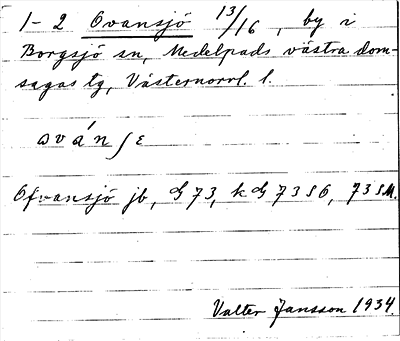 1-2 Ovansjö 13/16, by i
Borgsjö sn, Medelpads västra dom-
sagas tg, Västernorrl. l.
ován∫ɛ
Ofvansjö jb, G 73, k G 73 S6, 73 SM.
Valter Jansson 1934.